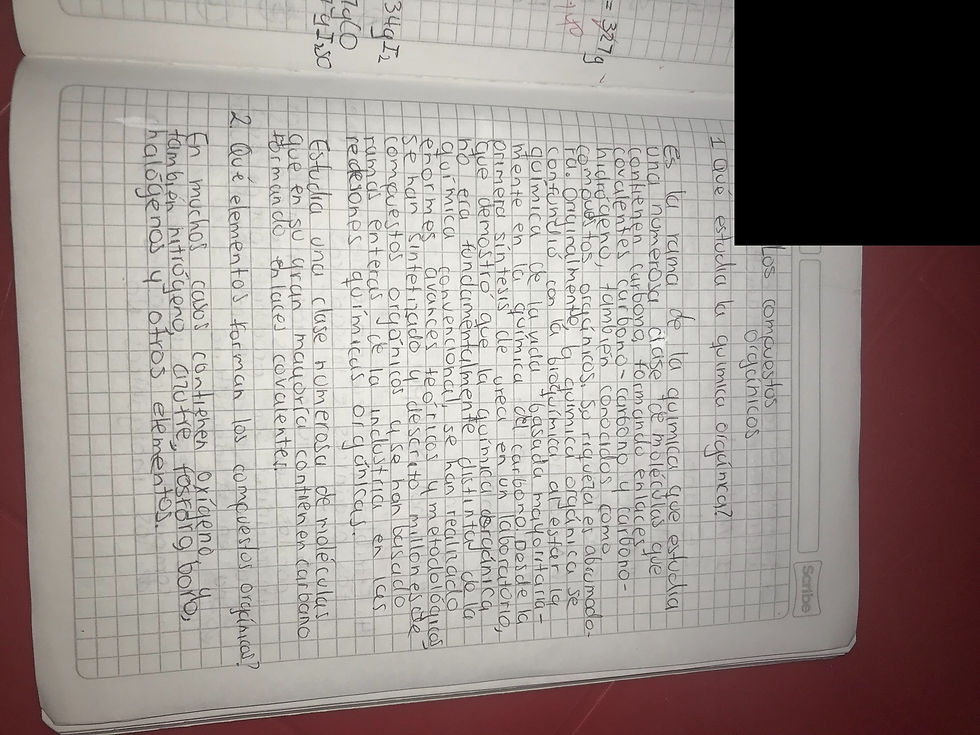 = 327g
34g I2
7g CO
7g I2SO
Scribe
los compuestos
orgánicos
1 Qué estudia la química orgánica?
Es la rama de la química que estudia
una numerosa clase de moléculas que
contienen carbono, formando enlaces
covalentes carbono-carbono y carbono-
hidrógeno, también conocidos como
compuestos orgánicos. Su riqueza es abrumado-
ra. Originalmente, a química orgánica se
confundió con la bioquímica al estar la
química de la vida basada mayoritaria-
mente en la química del carbono. Desde la
primera síntesis de urea en un laboratorio,
que demostró que la química
no era fundamentalmente distinta de la
química convencional, se han realizado
enormes avances teóricos y metodológicos
Se han sintetizado y descrito millones de
compuestos orgánicos y se han basado
ramas enteras de la industria en las
reacciones químicas orgánicas.
Estudia una clase numerosa de moléculas
que en su gran mayoría contienen carbono
formando enlaces covalentes.
2. Qué elementos forman los compuestos orgánicos?
En muchos casos contienen oxígeno y
también nitrógeno, azufre, fósforo, boro,
halógenos y otros elementos.